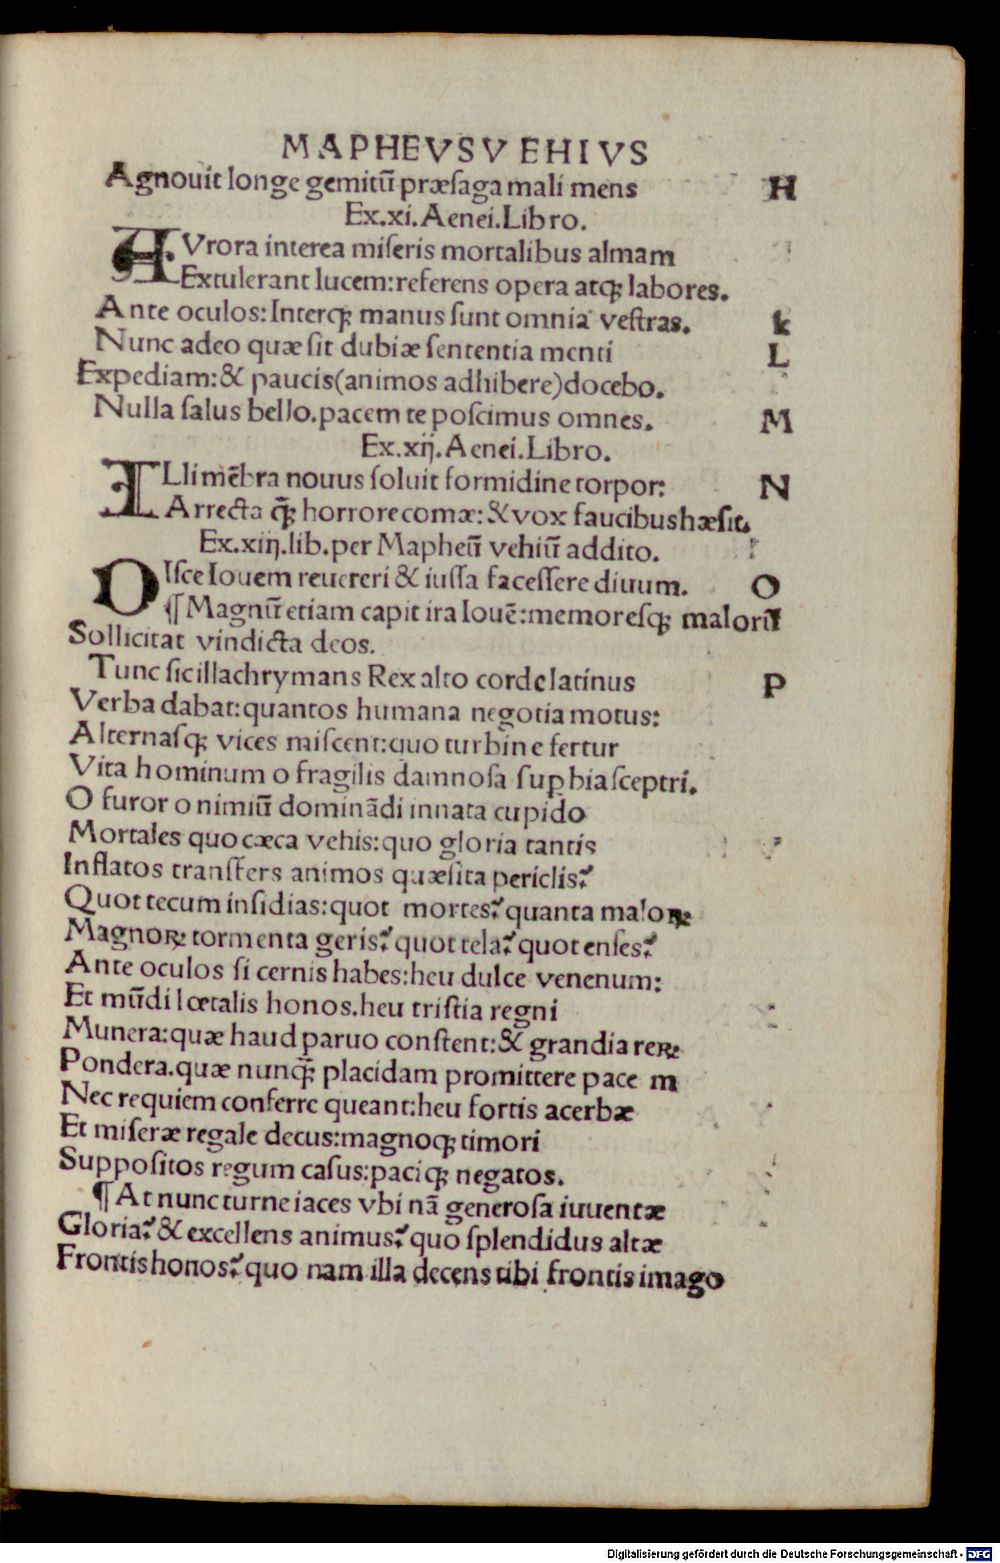 MAPHEVSVEHIVS
Agnouit longe gemitū præsaga mali mens H
Ex.xi.Aenei.Libro.
AVrora interea miseris mortalibus almam
Extulerant lucem:referens opera atqꝫ labores.
Ante oculos:Interqꝫ manus sunt omnia vestras. k
Nunc adeo quæ sit dubiæ sententia menti L
Expediam:& paucis(animos adhibere)docebo.
Nulla salus bello.pacem te poscimus omnes. M
Ex.xij.Aenei.Libro.
ILli mēbra nouus soluit formidine torpor: N
Arrecta qꝫ̄ horrore comæ:& vox faucibus hæsit.
Ex.xiij.lib.per Mapheū vehiū addito.
DIsce Iouem reuereri & iussa facessere diuum. O
¶ Magnū etiam capit ira Iouē:memoresqꝫ malorū
Sollicitat vindicta deos.
Tunc sic illachrymans Rex alto corde latinus P
Verba dabat:quantos humana negotia motus:
Alternasqꝫ vices miscent:quo turbine fertur
Vita hominum o fragilis damnosa suꝑbia sceptri.
O furor o nimiū dominādi innata cupido
Mortales quo cæca vehis:quo gloria tantis
Inflatos transfers animos quæsita periclis?
Quot tecum insidias:quot mortes?quanta maloꝝ
Magnoꝝ tormenta geris?quot tela?quot enses?
Ante oculos si cernis habes:heu dulce venenum:
Et mūdi lœtalis honos.heu tristia regni
Munera:quæ haud paruo constent:& grandia reꝝ
Pondera.quæ nunqꝫ̄ placidam promittere pace m
Nec requiem conferre queant:heu fortis acerbæ
Et miseræ regale decus:magnoqꝫ timori
Suppositos regum casus:paciqꝫ negatos.
¶ At nunc turne iaces vbi nā generosa iuuentæ
Gloria?& excellens animus?quo splendidus altæ
Frontis honos?quo nam illa decens tibi frontis imago
Digitalisierung gefördert durch die Deutsche Forschungsgemeinschaft - DFG